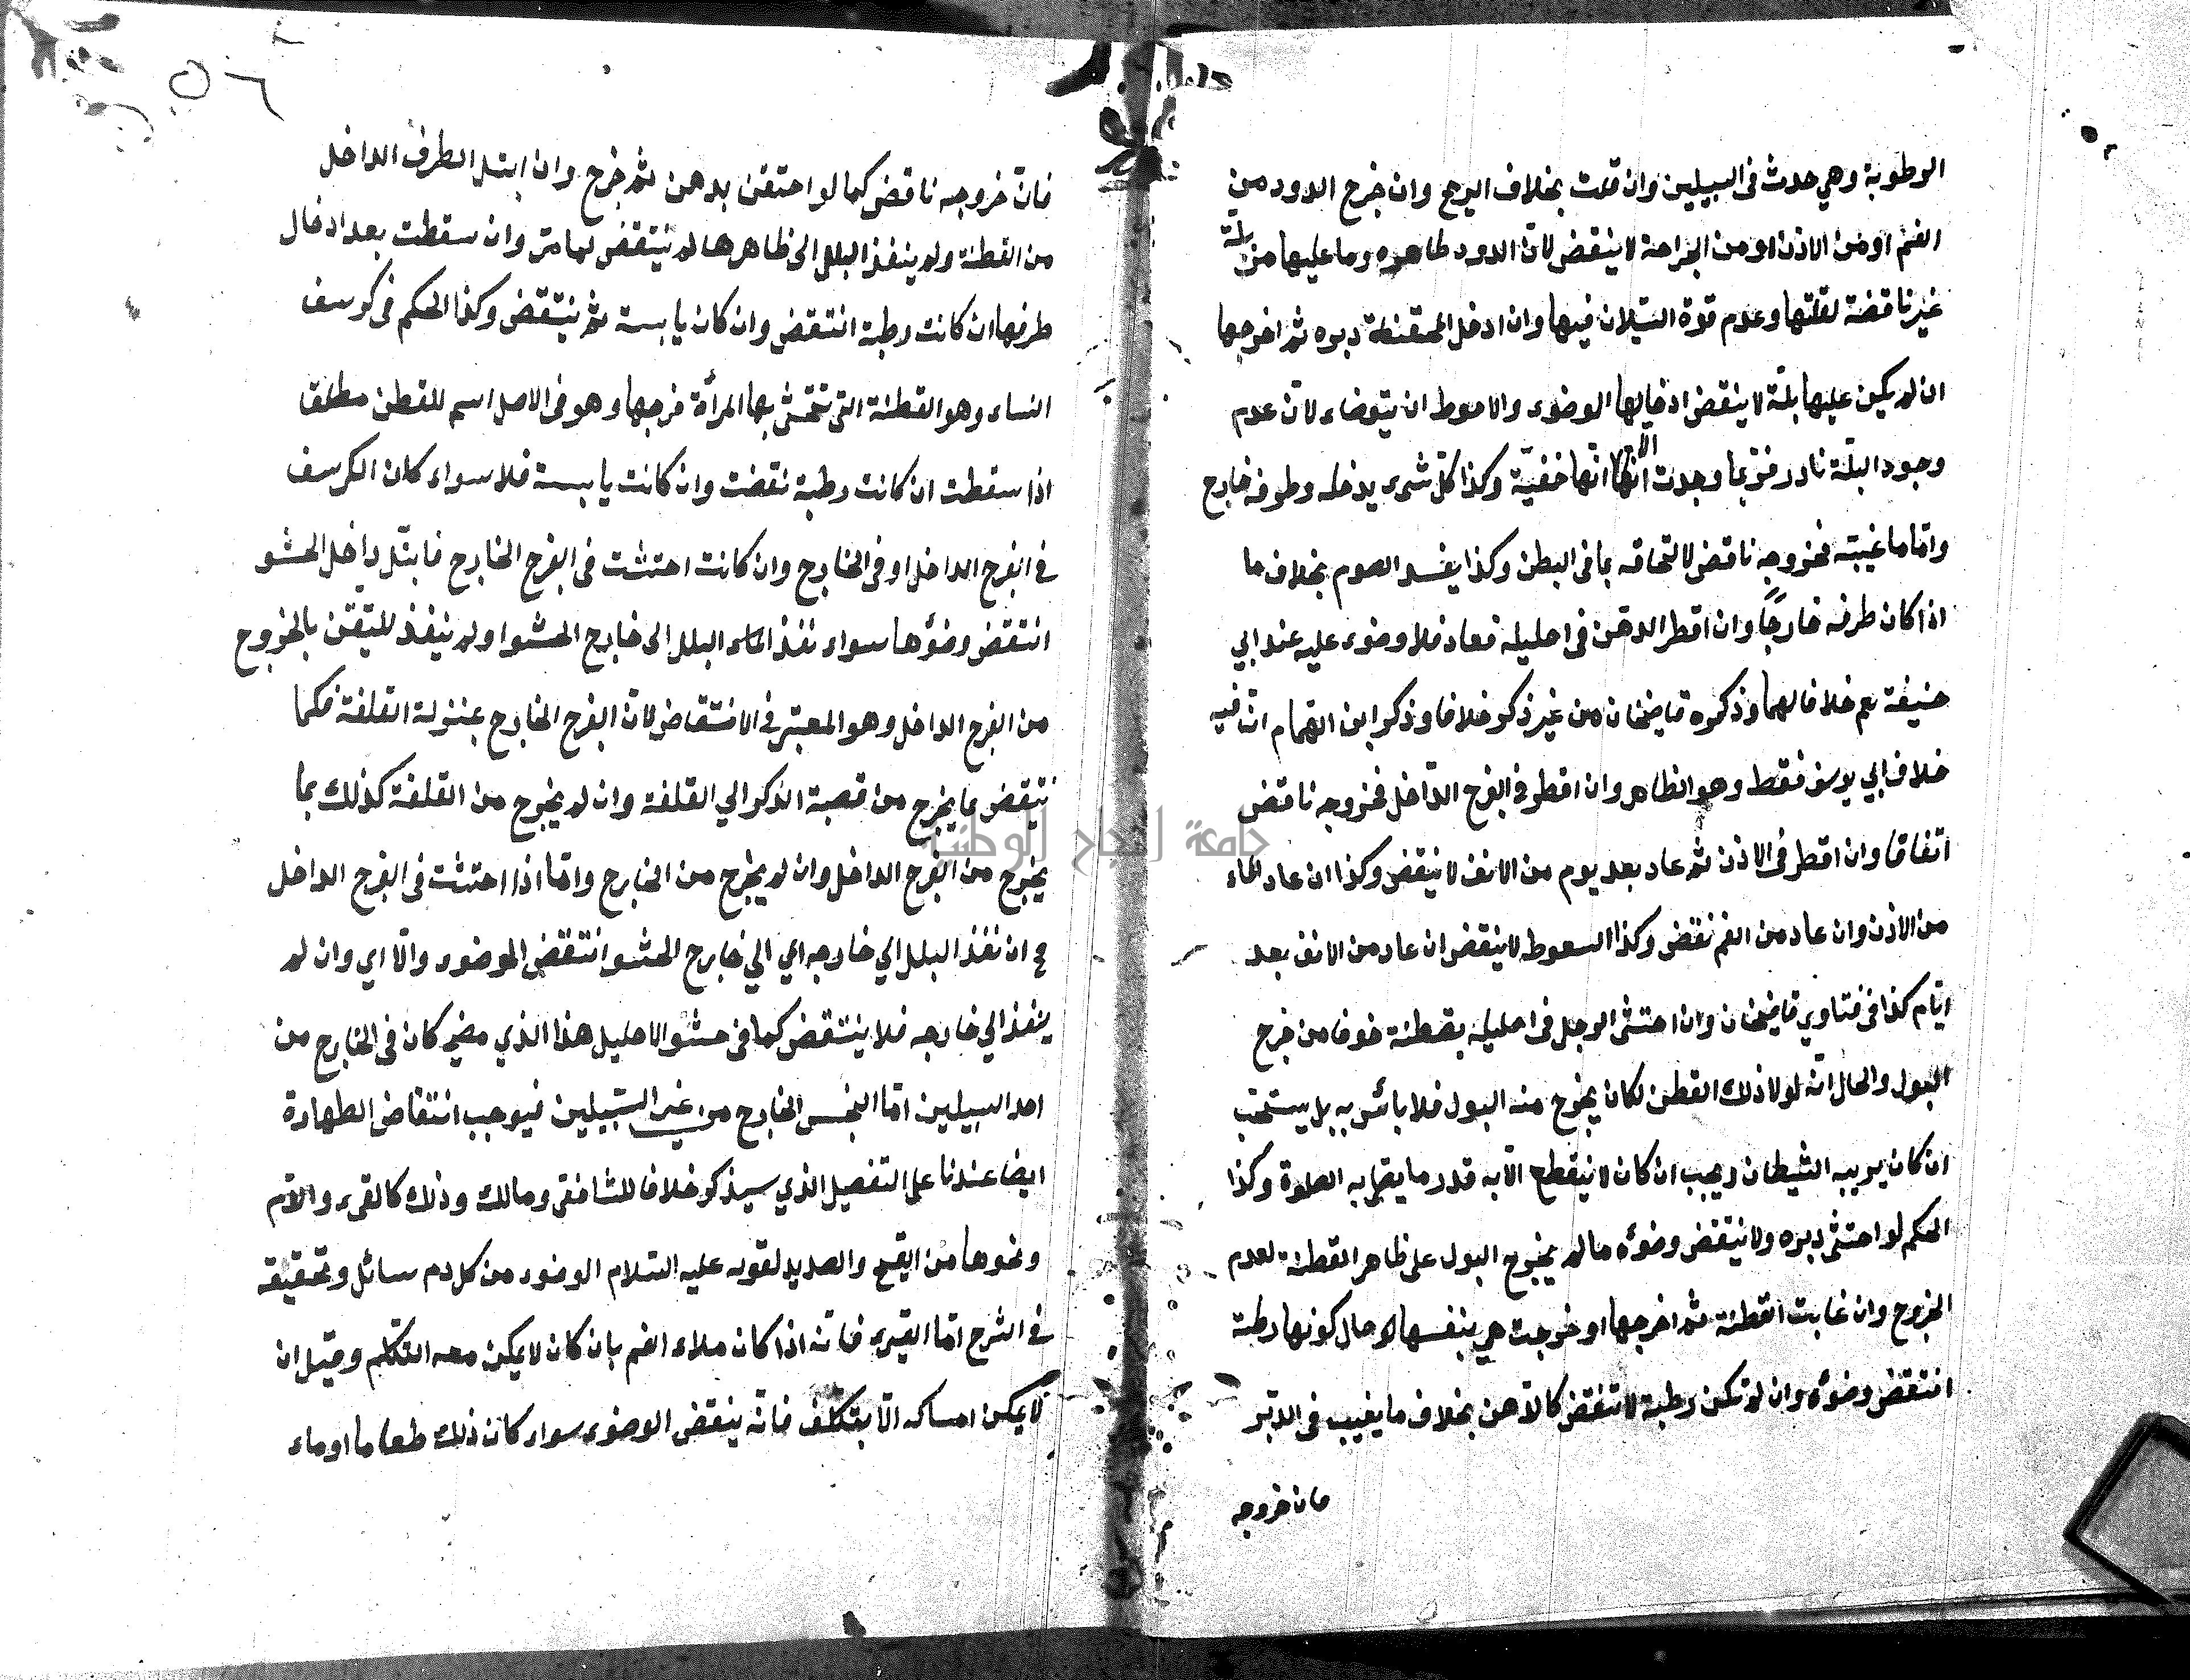 الرطوبة وهي حدث في السبيلين وان قلت بخلاف الريح وان خرج الدود من
الفم او من الاذن او من الجراحة لا ينقض لان الدود طاهره وما عليها من بلة
غير ناقضة لقلتها وعدم قوة السّيلان فيها وان ادخل المحقنة دبره ثم اخرجها
ان لم يكن عليها بلّة لا ينقض ادخالها الوضوء والاحوط ان يتوضاء لان عدم
وجود البلّة نادر فربما وجدت الا انها خفيّة وكذا كل شيء يدخله وطرفه خارج
وامّا ما غيبته فخروجه ناقض لالتحاقه بما في البطن وكذا يفسد الصوم بخلاف ما
اذا كان طرفه خارجًا وان اقطر الدهن في احليله فعاد فلا وضوء عليه عند ابي
حنيفة رحم خلافا لهما وذكره قاضيخان من غير ذكر خلافا وذكر ابن الهمام ان فيه
خلاف ابي يوسف فقط وهو الظاهر وان اقطر في الفرج الدّاخل فخروجه ناقض
اتفاقا وان اقطر في الاذن ثم عاد بعد يوم من الانف لا ينقض وكذا ان عاد الماء
من الاذن وان عاد من الفم نقض وكذا السعوط لا ينقض ان عاد من الانف بعد
ايّام كذا في فتاوي قاضيخان وان احتشى الرجل في احليله بقطنة خوفا من خرج
البول والحال انه لولا ذلك القطن لكان يخرج منه البول فلا بأس به بل يستحب
ان كان يريبه الشيطان ويجب ان كان لا ينقطع الّا به قدر ما يصلي به الصلوة وكذا
الحكم لو احتشى دبره ولا ينتقض وضوءه ما لم يخرج البول على ظاهر القطنة لعدم
الخروج وان غابت القطنة ثم اخرجها او خرجت هي بنفسها حال كونها رطبة
انتقض وضوءه وان لم تكن رطبة لا تنقض كالدّهن بخلاف ما يغيب في الدبر
فان خروجه
فانّ خروجه ناقض كما لو احتقن بدهن ثم خرج وان ابتل الطرف الداخل
من القطنة ولم ينفذ البلل الى ظاهرها لم ينتقض لما مرّ وان سقطت بعد ادخال
طرفها ان كانت رطبة انتقض وان كان يابسة لم ينتقض وكذا الحكم في كرسف
النساء وهو القطنة التي تحتشى بها المرأة فرجها وهو في الاصل اسم للقطن مطلقا
اذا سقطت ان كانت رطبة نقضت وان كانت يابسة فلا سواء كان الكرسف
في الفرج الداخل او في الخارج وان كانت احتشت في الفرج الخارج فابتّل داخل الحشو
انتقض وضوءها سواء نفذ البلل الى خارج الحشو او لم ينفذ للتيقن بالخروج
من الفرج الداخل وهو المعتبر في الانتقاض لان الفرج الخارج بمنزلة القلفة فكما
ينتقض بما يخرج من قصبة الذكر الي القلفة وان لم يخرج من القلفة كذلك بما
يخرج من الفرج الداخل وان لم يخرج من الخارج وامّا اذا احتشت في الفرج الداخل
فح ان نفذ البلل الي خارجه اي الي خارج الحشو انتقض الوضوء والّا اي وان لم
ينفذ الي خارجه فلا ينتقض كما في حشو الاحليل هذا الذي مضى كان في الخارج من
احد السبيلين امّا النجس الخارج من غير السّبيلين فيوجب انتقاض الطهارة
ايضا عندنا على التفصيل الذي سيذكر خلافا للشافعي ومالك وذلك كالقيء والدّم
ونحوها من القيح والصديد لقوله عليه السّلام الوضوء من كل دم سائل وتحقيقه
في الشرح امّا القيء فانه اذا كان ملاء الفم بان كان لا يمكن معه التكلّم وقيل ان
لا يمكن امساكه الّا بتكلّف فانّه ينقض الوضوء سواء كان ذلك طعاما او ماء
جامعة النجاح الوطنية